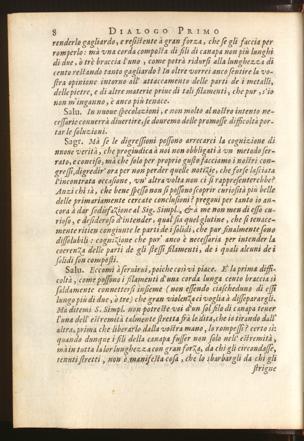 8 DIALOGO PRIMO
renderlo gagliardo, e resistente à gran forza, che se gli faccia per
romperlo: mà vna corda composta di fili di canapa non più lunghi
di due, ò trè braccia l'uno, come potrà ridursi alla lunghezza di
cento restando tanto gagliardo? In oltre vorrei anco sentire la vo-
stra opinione intorno all'attaccamento delle parti de i metalli,
delle pietre, e di altre materie priue di tali filamenti, che pur, s'io
non m'inganno, è anco più tenace.
Salu. In nuoue specolazioni, e non molto al nostro intento ne-
cessarie conuerrà diuertire, se douremo delle promosse difficoltà por-
tar le soluzioni.
Sagr. Mà se le digressioni possono arrecarci la cognizione di
nuoue verità, che progiudica à noi non obbligati à vn metodo ser-
rato, e conciso, mà che solo per proprio gusto facciamo i nostri con-
gressi, digredir' ora per non perder quelle notizie, che forse lasciata
l'incontrata occasione, vn'altra volta non ci si rappresenterebbe?
Anzi chi sà, che bene spesso non si possano scoprir curiosità più belle
delle primariamente cercate conclusioni? pregoni per tanto io an-
cora à dar sodisfazione al Sig. Simpl. & à me non men di esso cu-
rioso, e desideroso d'intender, qual sia quel glutine, che sì tenace-
mente ritien congiunte le parti de i solidi, che pur finalmente sono
dissolubili: cognizione che pur' anco è necessaria per intender la
coerenza delle parti de gli stessi filamenti, de i quali alcuni de i
solidi son composti.
Salu. Eccomi à seruirui, poiche così vi piace. E' la prima diffi-
coltà, come possono i filamenti d'una corda lunga cento braccia sì
saldamente connettersi insieme (non essendo ciascheduno di essi
lungo più di due, ò tre) che gran violenza ci voglia à disseparargli.
Mà ditemi S. Simpl. non potreste voi d'un sol filo di canapa tener
l'una dell'estremità talmente stretta frà le dita, che io tirando dall'
altra, prima che liberarlo dalla vostra mano, lo rompessi? certo sì:
quando dunque i fili della canapa fusser non solo nell'estremità,
mà in tutta la lor lunghezza con gran forza, da chi gli circondasse,
tenuti stretti, non è manifesta cosa, che lo sbarbargli da chi gli
strigne